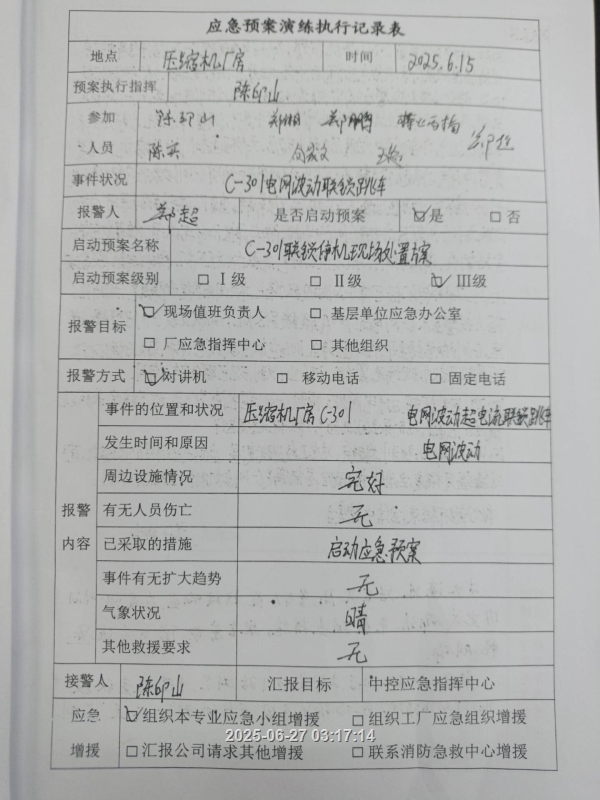 应急预案演练执行记录表
地点 压缩机厂房 时间 2025.6.15
预案执行指挥 陈印山
参加 陈印山 郑鹏
人员 陈英
事件状况 C-301电网波动联锁跳车
报警人 郑超 是否启动预案 ☑是 □否
启动预案名称 C-301联锁停机现场处置方案
启动预案级别 □Ⅰ级 □Ⅱ级 ☑Ⅲ级
报警目标 ☑现场值班负责人 □基层单位应急办公室
□厂应急指挥中心 □其他组织
报警方式 ☑对讲机 □移动电话 □固定电话
报警内容
事件的位置和状况 压缩机厂房C-301 电网波动超电流联锁跳车
发生时间和原因 电网波动
周边设施情况 完好
有无人员伤亡 无
已采取的措施 启动应急预案
事件有无扩大趋势 无
气象状况 晴
其他救援要求 无
接警人 陈印山 汇报目标 中控应急指挥中心
应急 ☑组织本专业应急小组增援 □组织工厂应急组织增援
2025-06-27 03:17:14
增援 □汇报公司请求其他增援 □联系消防急救中心增援